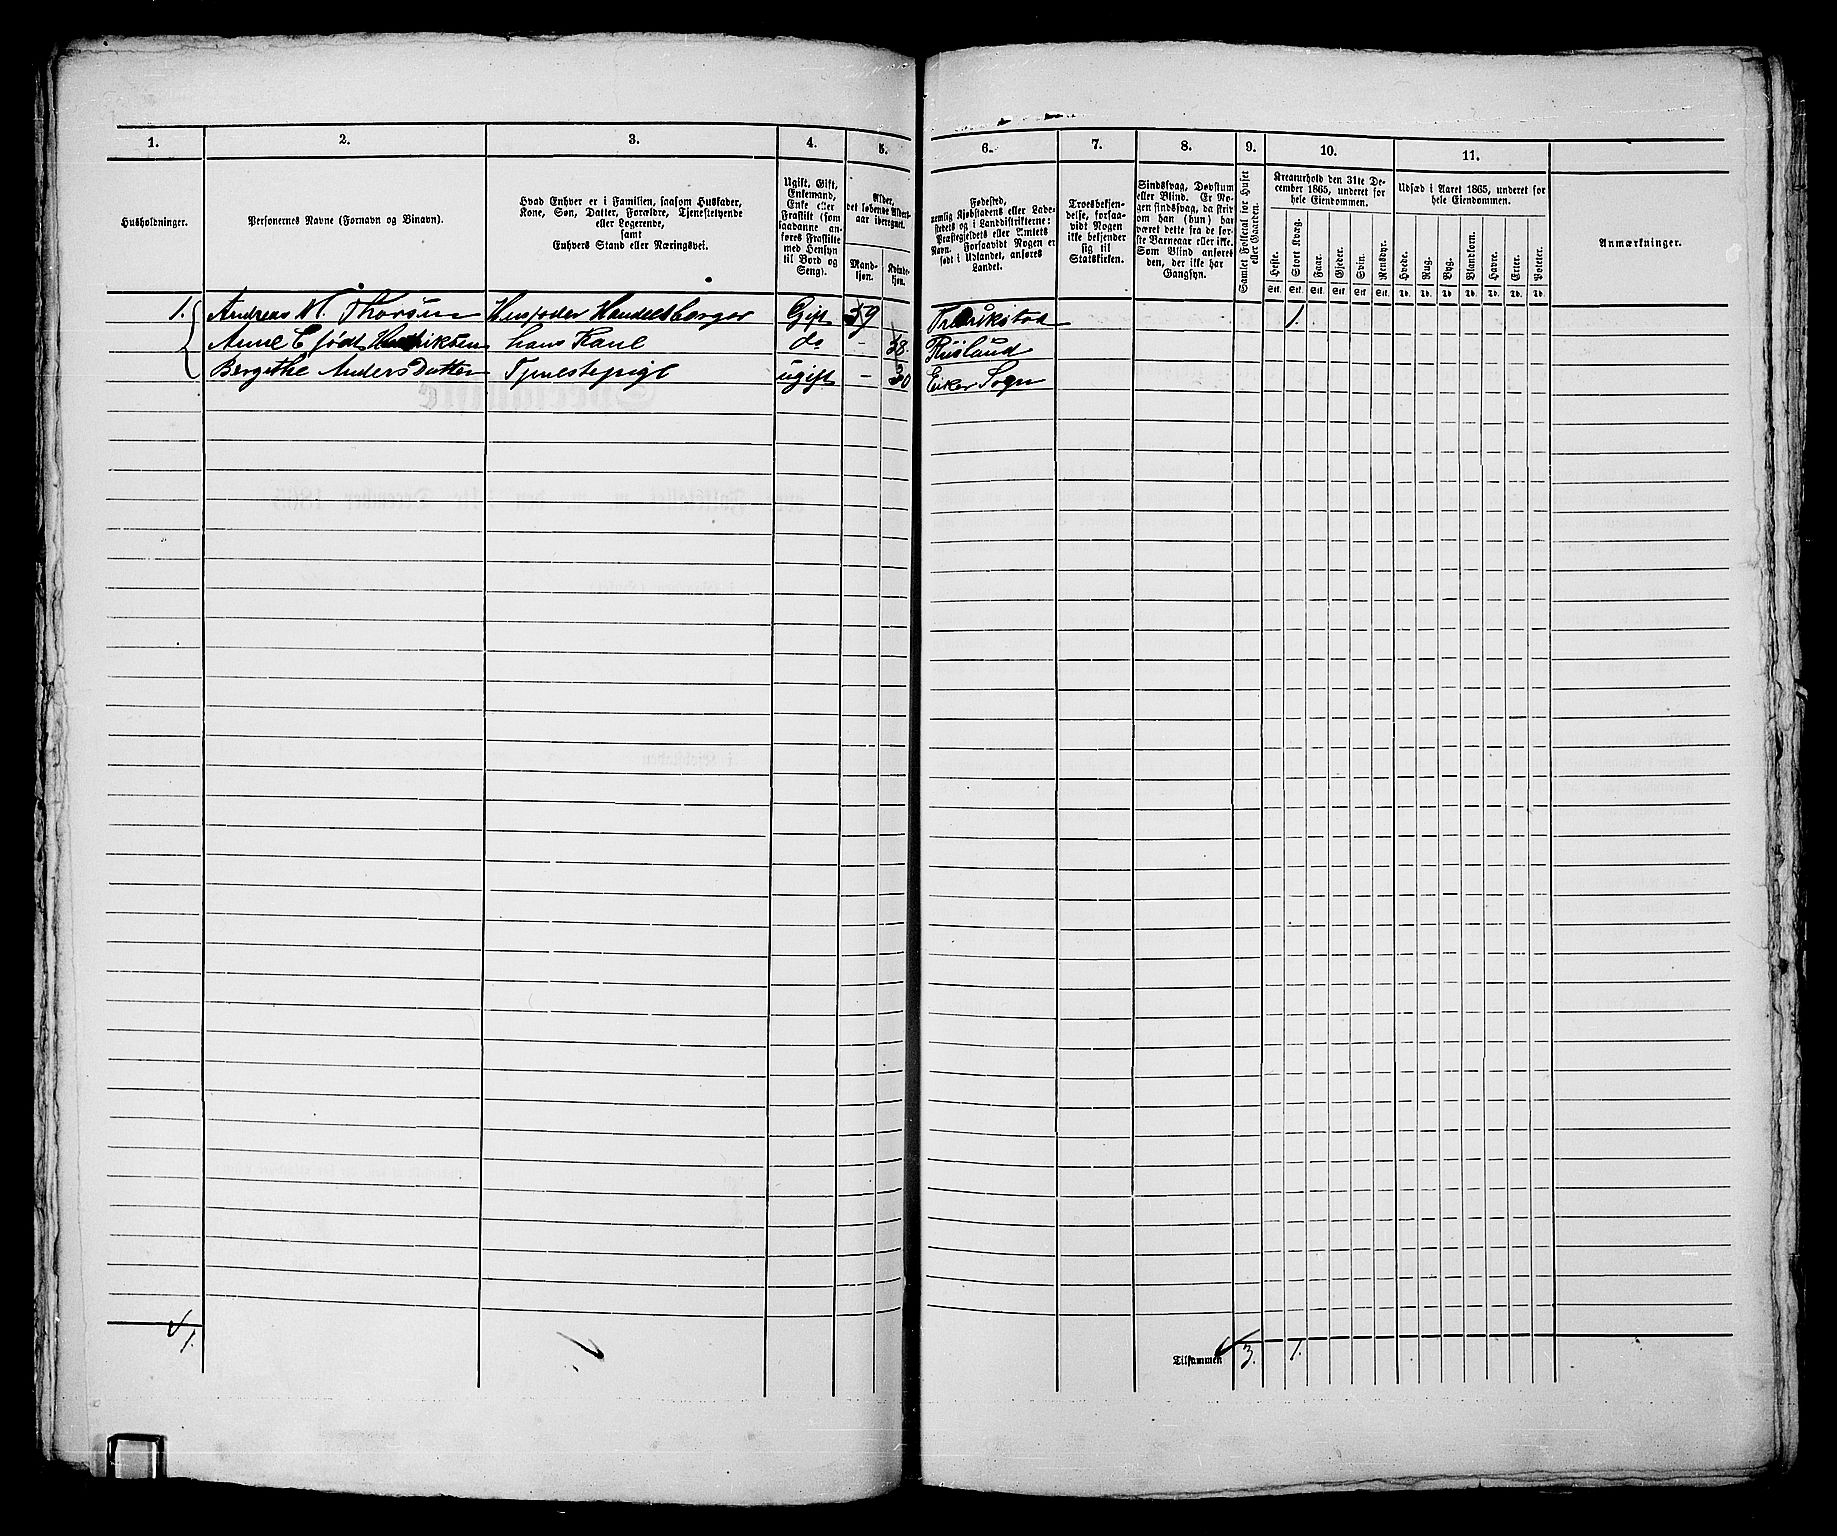 1.
2.
3.
4.
5.
Husholdninger.
Personernes Navne (Fornavn og Binavn).
Hvad Enhver er i Familien, saasom Husfader,
Kone, Søn, Datter, Forældre, Tjenestetyende
eller Logerende,
samt
Enhvers Stand eller Næringsvei.
Ugift, Gift,
Enkemand,
Enke eller
Fraskilt (som
saadanne an-
føres Fraskilte
med Hensyn
til Bord og
Seng).
Alder,
det løbende Alders-
aar iberegnet.
Mand-
kjøn.
Kvinde-
kjøn.
1. Andreas M. Thorsen Husfader Handelsborger Gift 59
Anne C født Hendriksen hans Kone do - 58.
Bergithe Anders Datter Tjenestepige ugift - 30
1.
6.
7.
8.
9.
10.
11.
Fødested,
nemlig Kjøbstadens eller Lade-
stedets og i Landdistrikterne:
Præstegjeldets eller Amtets
Navn. Forsaavidt Nogen er
født i Udlandet, anføres
Landet.
Troesbekjen-
delse, forsaa-
vidt Nogen
ikke bekjender
sig til
Statskirken.
Sindssvag, Døvstum
eller Blind. Er No-
gen sindssvag, da skriv
om han (hun) har
været dette fra de før-
ste Barneaar eller ikke.
Som Blind anføres
den, der ikke har
Gangsyn.
Samlet Folketal for Huset
eller Gaarden.
Kreaturhold den 31te De-
cember 1865, underet for
hele Eiendommen.
Heste. Stort Kvæg. Faar. Gjeder. Svin. Rensdyr.
Stk. Stk. Stk. Stk. Stk. Stk.
Udsæd i Aaret 1865, underet for
hele Eiendommen.
Hvede. Rug. Byg. Blandkorn. Havre. Erter. Poteter.
Td. Td. Td. Td. Td. Td. Td.
Anmærkninger.
Fredrikstad 1.
Rusland
Eker Sogn
Tilsammen 3. 1.